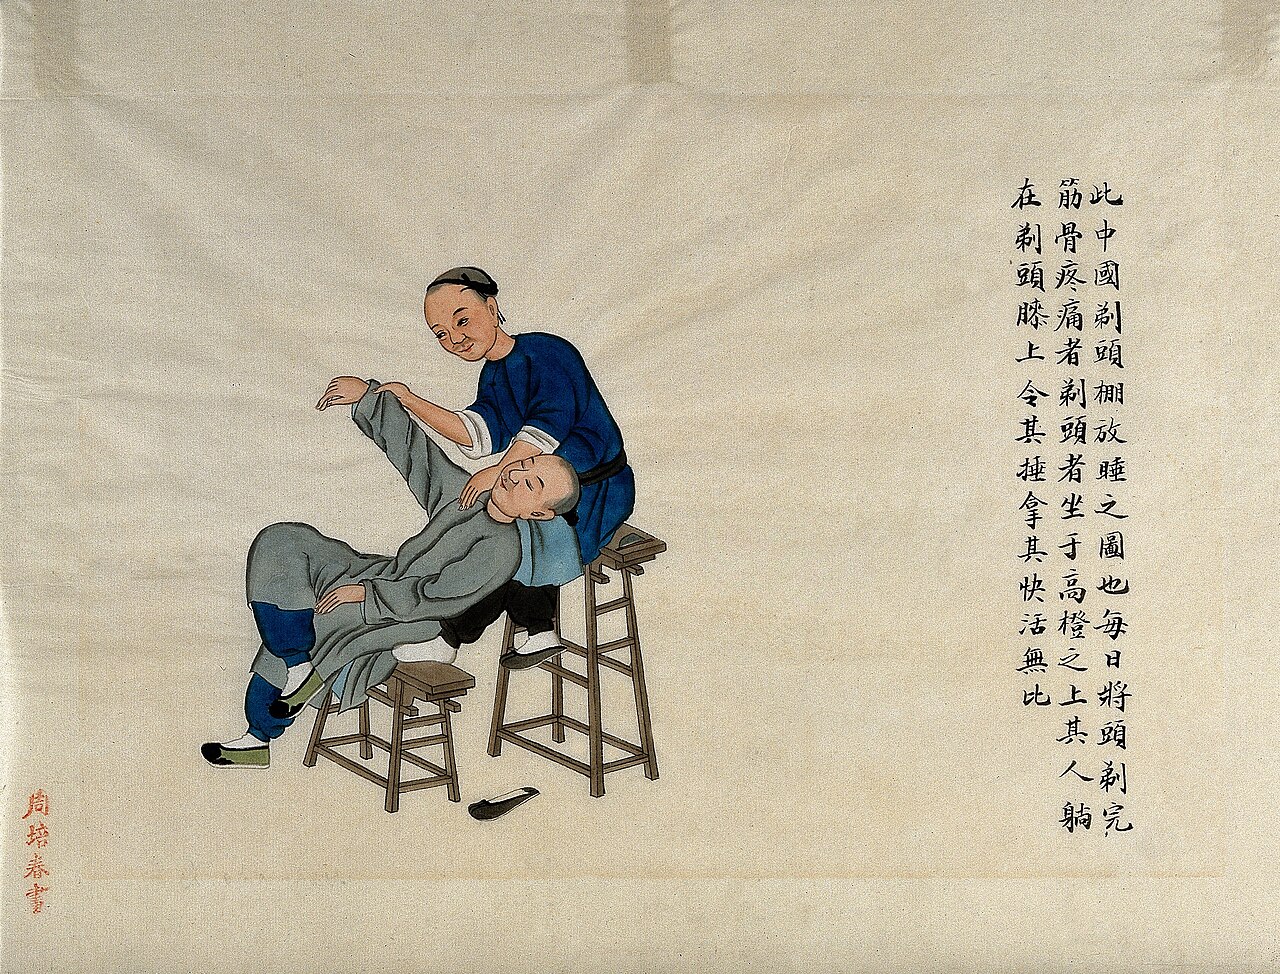 此中國剃頭棚放睡之圖也每日將頭剃完
筋骨疼痛者剃頭者坐于高橙之上其人躺
在剃頭膝上令其捶拿其快活無比
周培春畫